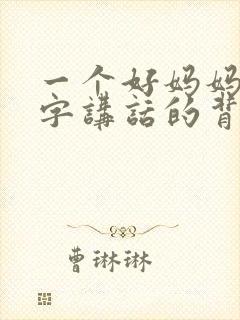 一个好妈妈
字講話的背
曹琳琳